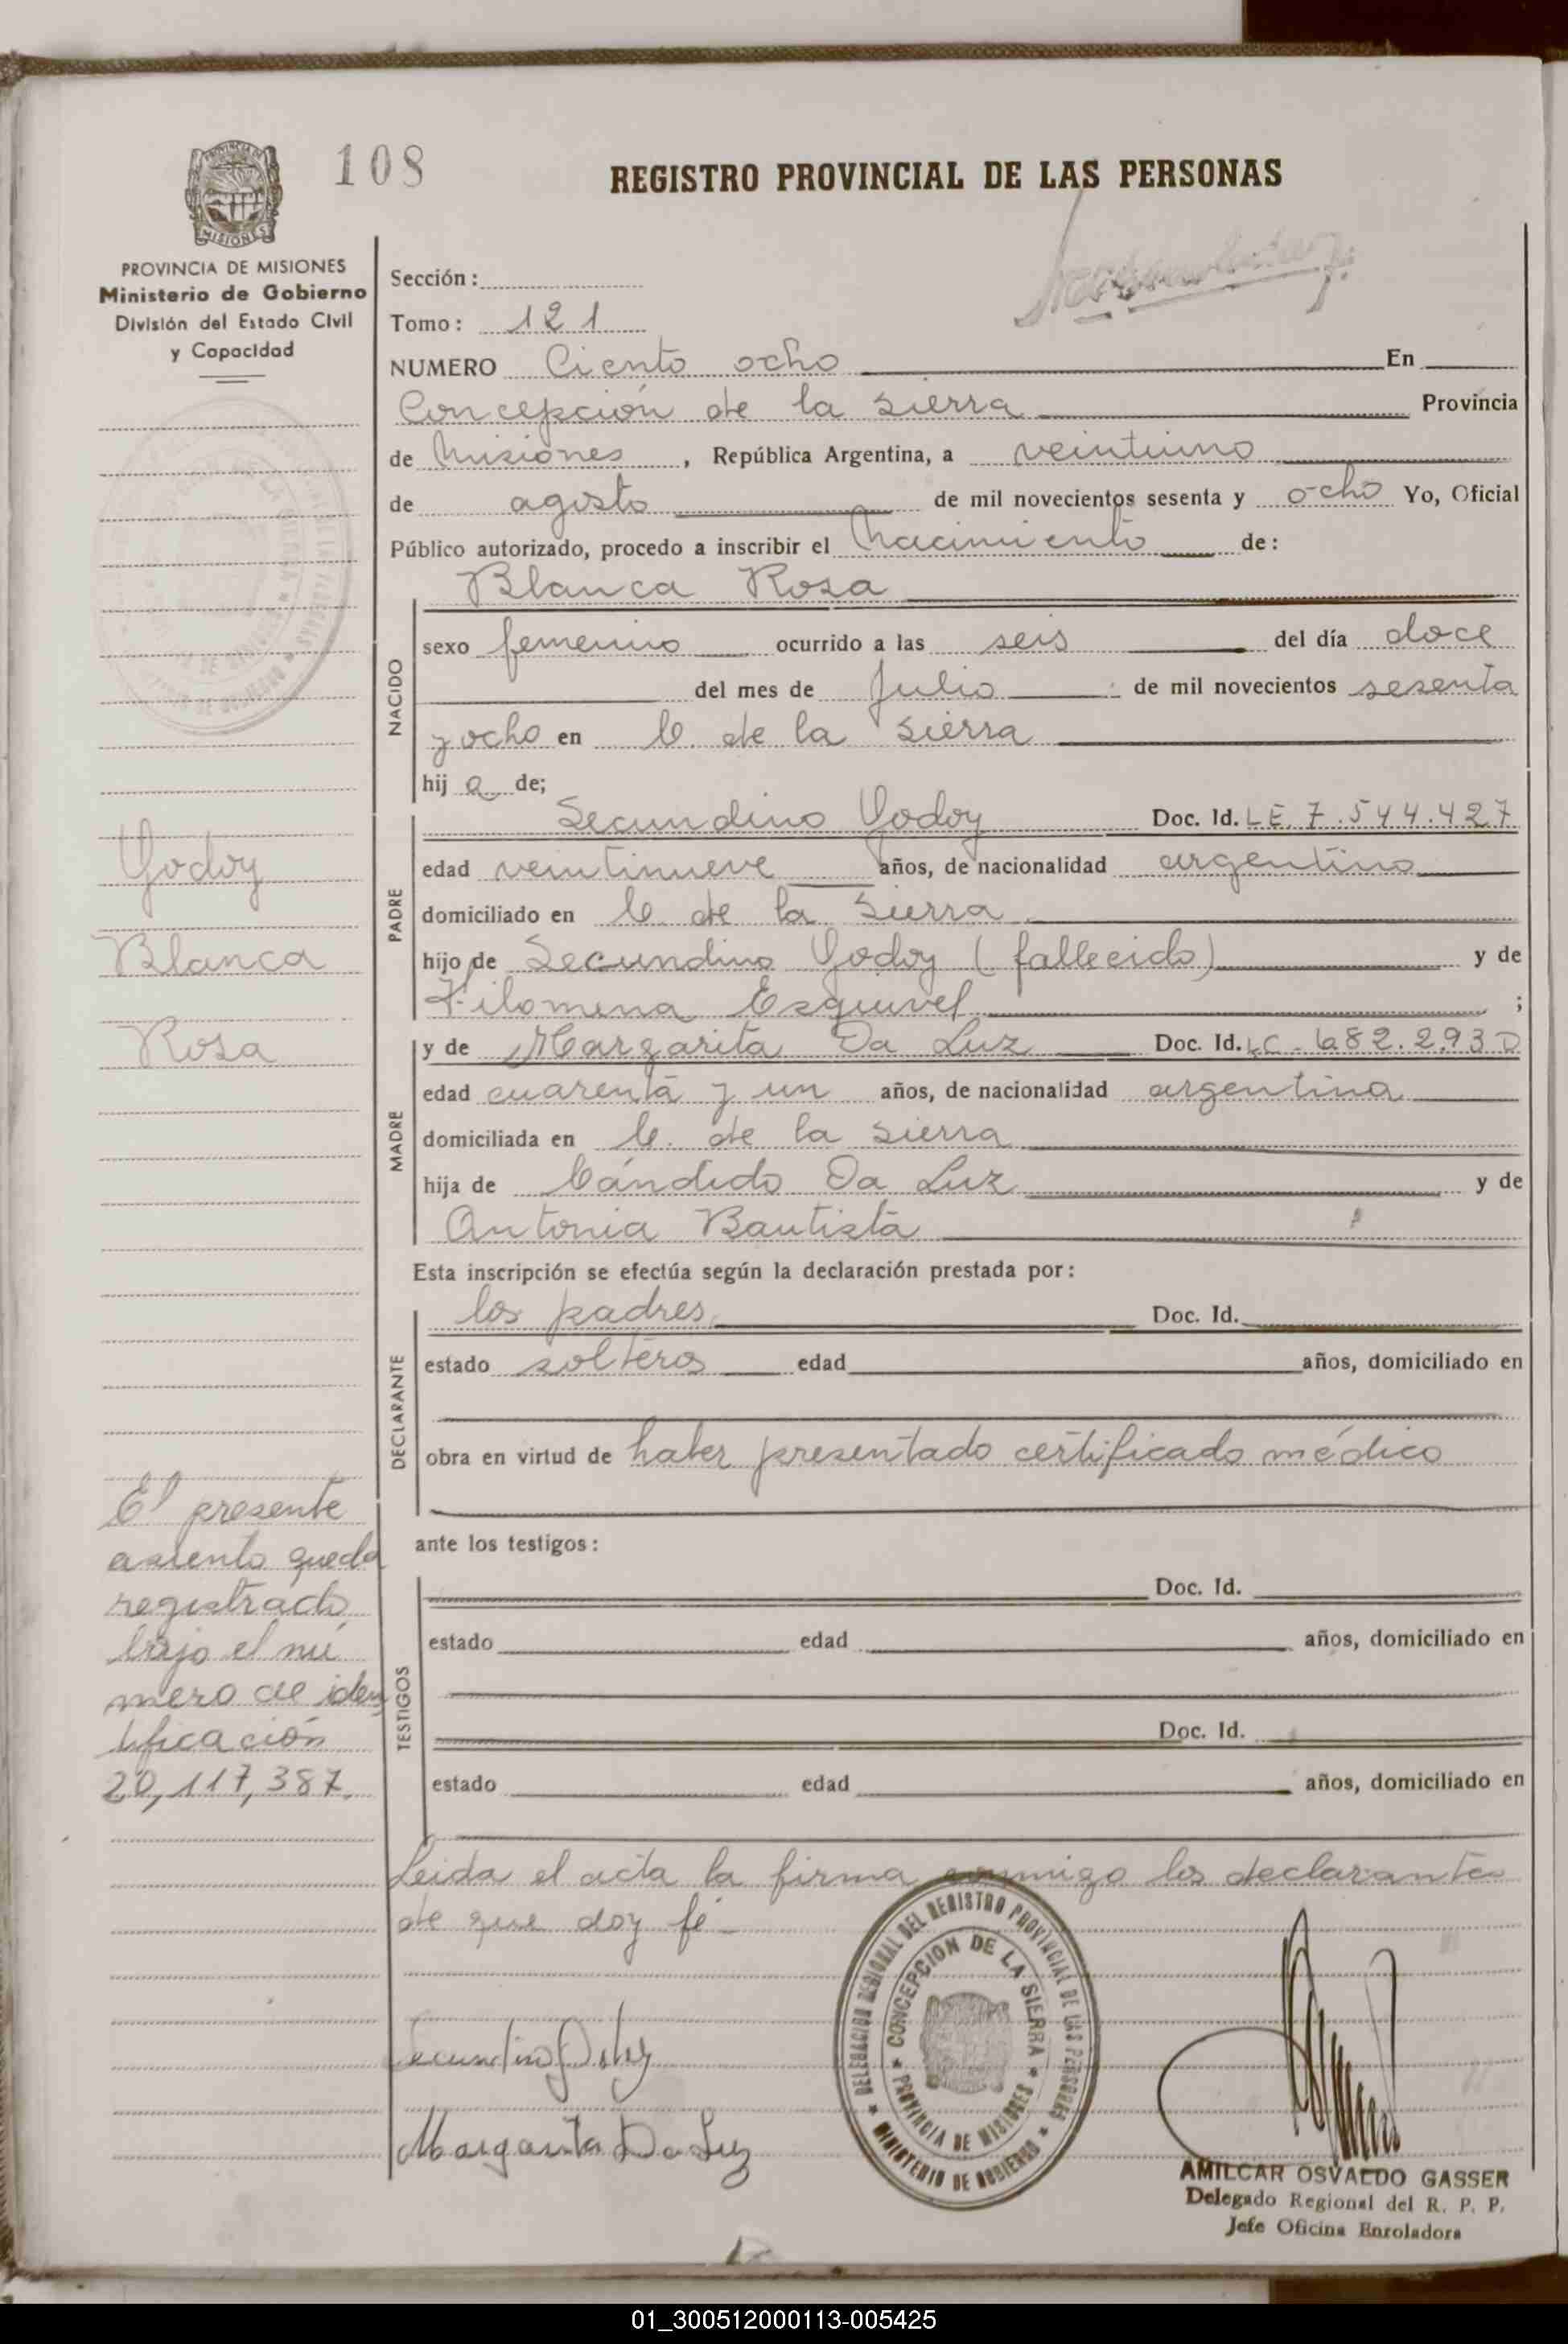 108
REGISTRO PROVINCIAL DE LAS PERSONAS
PROVINCIA DE
MISIONES
PROVINCIA DE MISIONES
Ministerio de Gobierno
División del Estado Civil
y Capacidad
Sección:
Tomo: 121
NUMERO Ciento ocho En
Concepción de la Sierra Provincia
de Misiones, República Argentina, a veintiuno
de agosto de mil novecientos sesenta y ocho Yo, Oficial
Público autorizado, procedo a inscribir el Nacimiento de:
Blanca Rosa
NACIDO
sexo femenino ocurrido a las seis del día doce
del mes de Julio de mil novecientos sesenta
y ocho en C. de la Sierra
hija de;
PADRE
Secundino Godoy Doc. Id. LE. 7.544.427
edad veintinueve años, de nacionalidad argentino
domiciliado en C. de la Sierra
hijo de Secundino Godoy (fallecido) y de
Filomena Esquivel ;
MADRE
y de Margarita Da Luz Doc. Id. LC. 682.293 D
edad cuarenta y un años, de nacionalidad argentina
domiciliada en C. de la Sierra
hija de Cándido Da Luz y de
Antonia Bautista
Esta inscripción se efectúa según la declaración prestada por:
DECLARANTE
los padres Doc. Id.
estado solteros edad años, domiciliado en
obra en virtud de haber presentado certificado médico
ante los testigos:
TESTIGOS
Doc. Id.
estado edad años, domiciliado en
Doc. Id.
estado edad años, domiciliado en
Leida el acta la firma conmigo los declarantes
de que doy fé
Godoy
Blanca
Rosa
El presente
asiento queda
registrado
bajo el nú
mero de iden
tificación
20,117,387.
Secundino Godoy
Margarita Da Luz
DELEGACION REGIONAL DEL REGISTRO PROVINCIAL DE LAS PERSONAS
MINISTERIO DE GOBIERNO
CONCEPCION DE LA SIERRA
PROVINCIA DE MISIONES
AMILCAR OSVALDO GASSER
Delegado Regional del R. P. P.
Jefe Oficina Enroladora
01_300512000113-005425